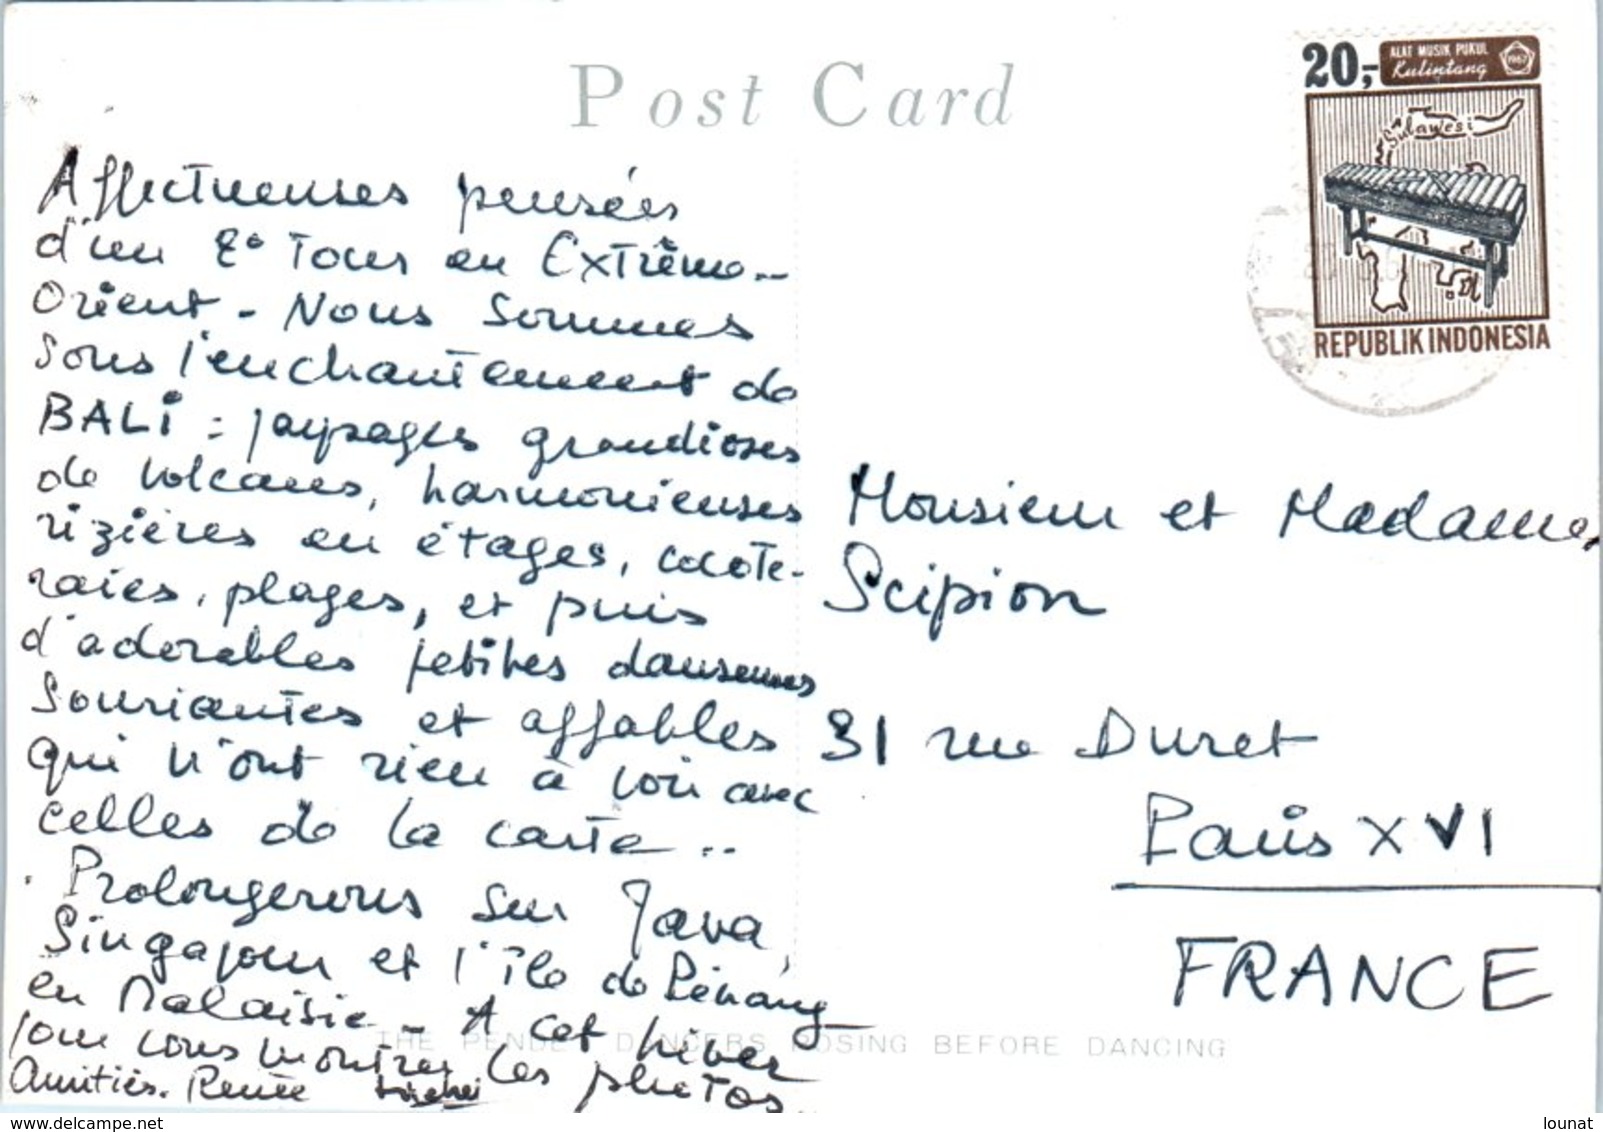 Post Card
20,-
ALAT MUSIK PUKUL
Kulintang
1967
Sulawesi
REPUBLIK INDONESIA
Affectueuses pensées
d'un 2e Tour en Extrême-
Orient - Nous sommes
sous l'enchantement de
BALI : paysages grandioses
de volcans, harmonieuses
rizières en étages, cocote-
raies, plages, et puis
d'adorables petites danseuses
souriantes et affables
qui n'ont rien à voir avec
celles de la carte..
Prolongerons sur Java,
Singapour et l'île de Pénang
en Malaisie - A cet hiver
pour vous montrer les photos
Amitiés. Renée
Monsieur et Madame
Scipion
31 rue Duret
Paris XVI
FRANCE
THE PENDET DANCERS POSING BEFORE DANCING
delcampe.net
lounat